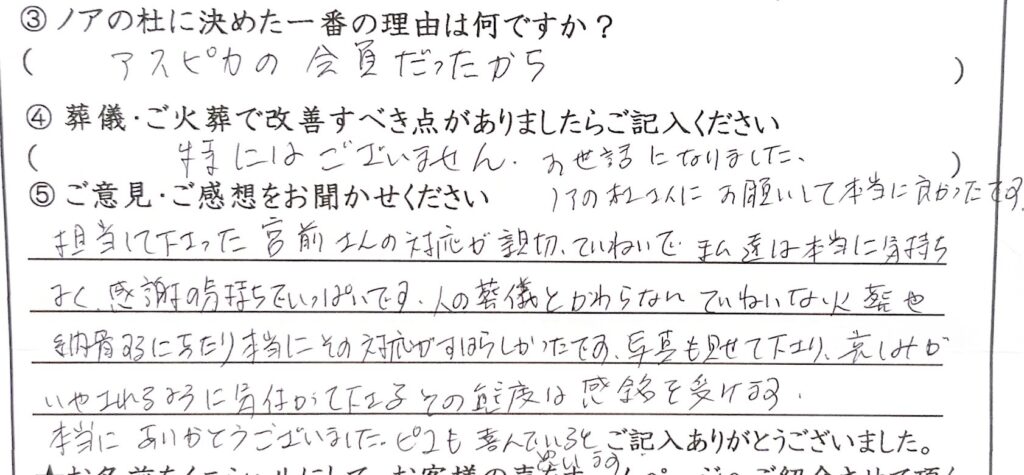 ③ ノアの杜に決めた一番の理由は何ですか？
( アスピカの会員だったから )
④ 葬儀・ご火葬で改善すべき点がありましたらご記入ください
( 特にはございません. お世話になりました、 )
⑤ ご意見・ご感想をお聞かせください ノアの杜さんにお願いして本当に良かったです、
担当して下さった宮前さんの対応が親切、ていねいで私達は本当に気持ち
よく、感謝の気持ちでいっぱいです、人の葬儀とかわらない ていねいな火葬や
納骨するにあたり本当にその対応がすばらしかったです、写真も見せて下さり、哀しみが
いやされるように気付かって下さるその態度は感銘を受けます.
本当にありがとうございました. ピコも喜んでいると思います ご記入ありがとうございました。